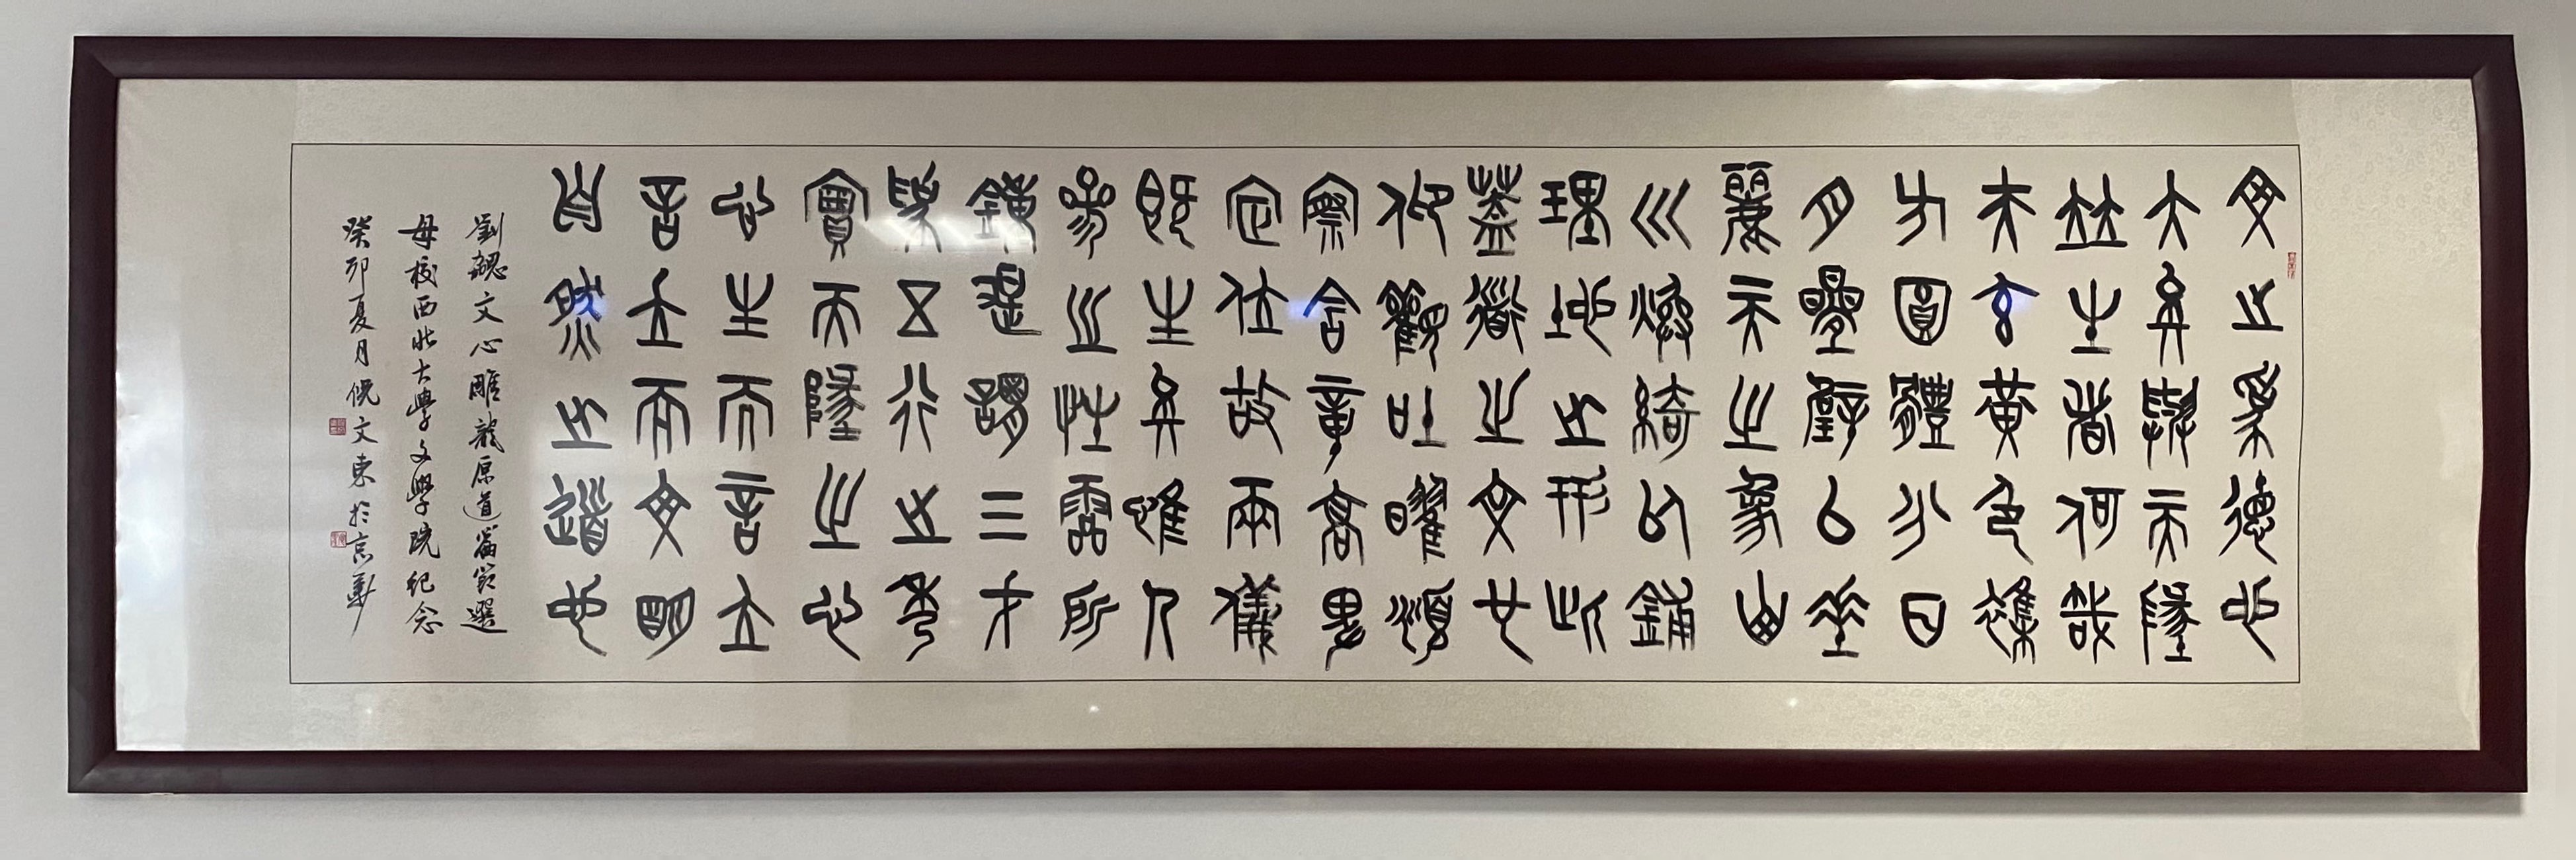 文之為德也
大矣與天地
並生者何哉
夫玄黃色雜
方圓體分日
月疊璧以垂
麗天之象山
川煥綺以鋪
理地之形此
蓋道之文也
仰觀吐曜俯
察含章高卑
定位故兩儀
既生矣惟人
參之性靈所
鍾是謂三才
為五行之秀
實天地之心
心生而言立
言立而文明
自然之道也
劉勰文心雕龍原道篇節選
母校西北大學文學院紀念
癸卯夏月倪文東於京華